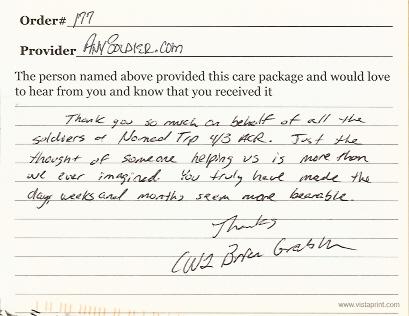 Order# 177
Provider ANYSOLDIER.COM
The person named above provided this care package and would love
to hear from you and know that you received it
Thank you so much on behalf of all the
soldiers of Nomad Trp 4/3 ACR. Just the
thought of someone helping us is more than
we ever imagined. You truly have made the
day, weeks and months seem more bearable.
Thanks
CW2 Brian
www.vistaprint.com